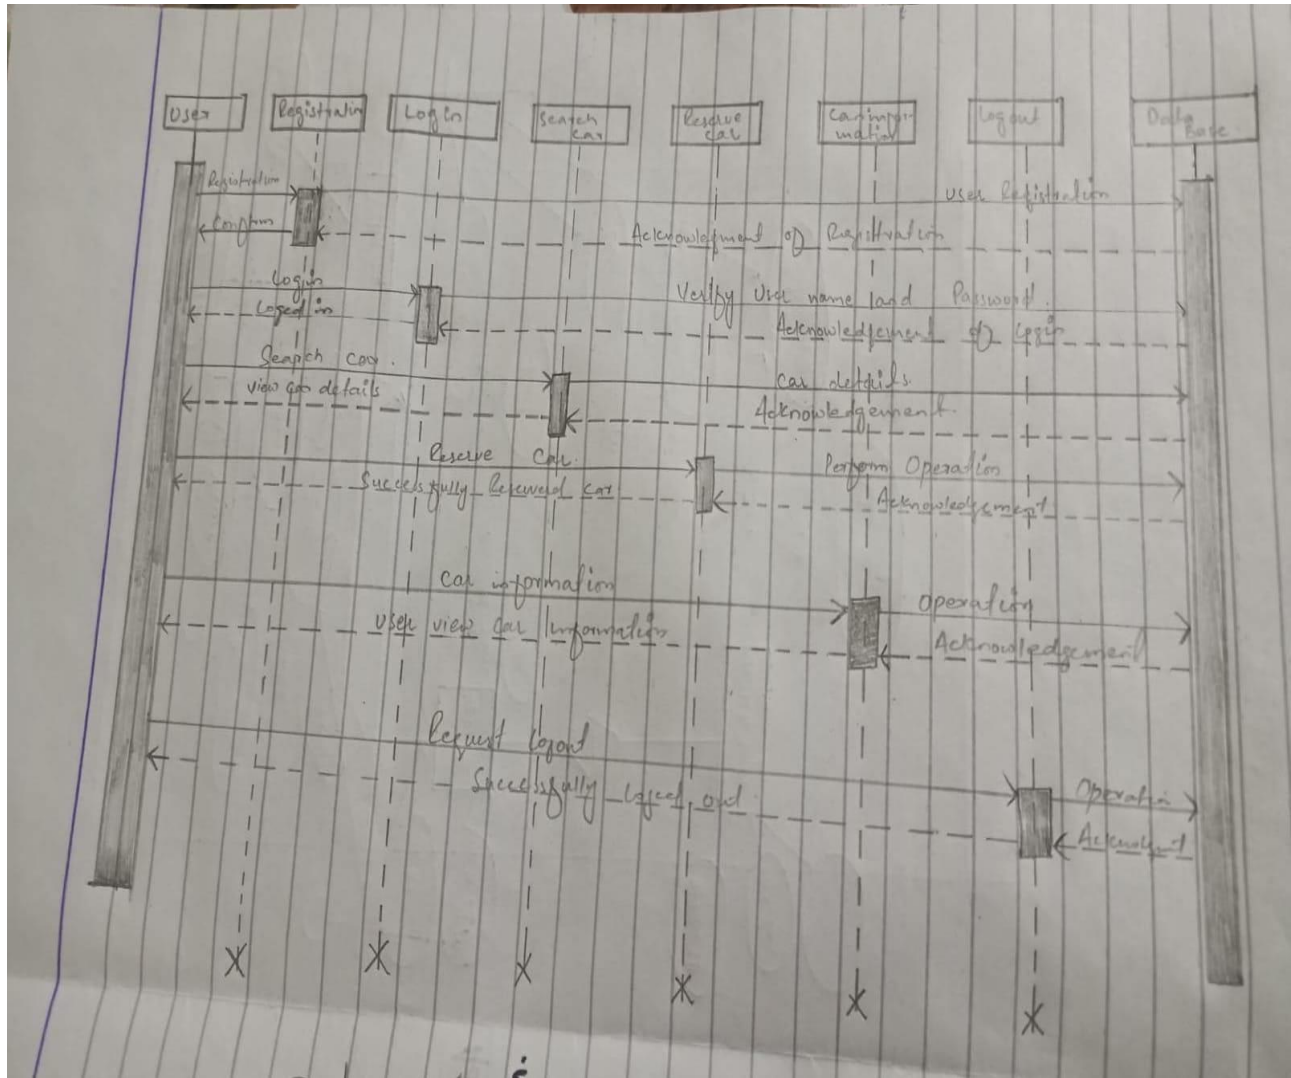 User
Registratin
Login
Search
car
Reserve
car
mation
Logout
Data
Base
Registration
User Registration
Confirm
Acknowledgment of Registration
Login
Verify User name and Password.
Loged in
Acknowledgement of Login
Search car.
car details.
view car details
Acknowledgement.
Reserve Car.
Perform Operation
Successfully car
Acknowledgement
Car information
Operation
User view car Information
Acknowledgement
Request Logout
Operatin
Successfully Loged out.